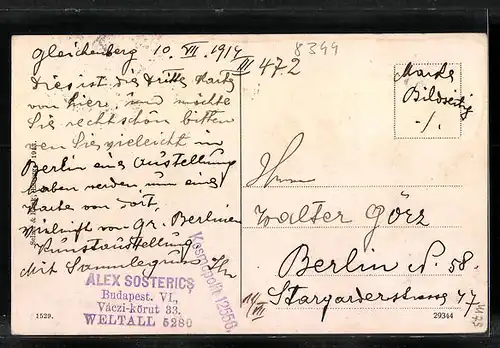 Gleichenberg 10. VII. 1914
8344
III 472
Dies ist die dritte Karte
von hier, und möchte
Sie recht schön bitten
wen Sie vieleicht in
Berlin eine Austellung
haben werden, um eine
Karte von dort,
von Gr. Berliner
Kunstausstellung
Mit Sammlergruss Ihr
ALEX SOSTERICS
Budapest. VI.,
Váczi-körut 33.
WELTALL 5280
Kosmopolit 12556.
1529.
Marke
Bildseitig
-/.
Herrn
Walter Görz
Berlin N. 58.
Stargarderstrasse 47
29344